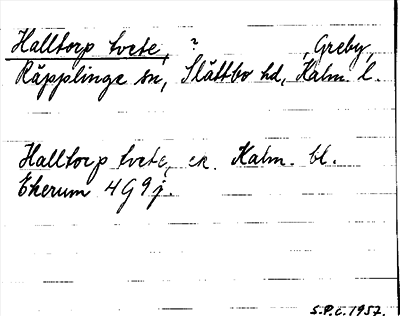 Halltorp tvete, ? , Greby,
Räpplinge sn, Slättbo hd, Kalm. l.
Halltorp tvete, ek. Kalm. bl.
Ekerum 4G9j.
S.P.C. 1957.